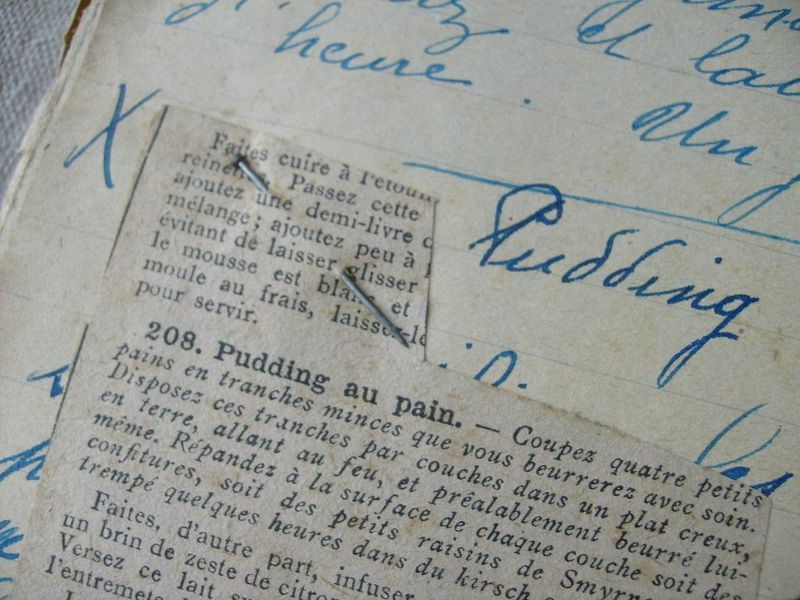 et
heure.
Un
Pudding
Faites cuire à l'étouff
Passez cette
ajoutez une demi-livre d
mélange; ajoutez peu à
évitant de laisser glisser
le mousse est blanc et
moule au frais, laissez-le
pour servir.
208. Pudding au pain. — Coupez quatre petits
pains en tranches minces que vous beurrerez avec soin.
Disposez ces tranches par couches dans un plat creux,
en terre, allant au feu, et préalablement beurré lui-
même. Répandez à la surface de chaque couche soit des
confitures, soit des petits raisins de Smyrne
trempé quelques heures dans du kirsch
Faites, d'autre part, infuser
un brin de zeste de citron
Versez ce lait
l'entremets